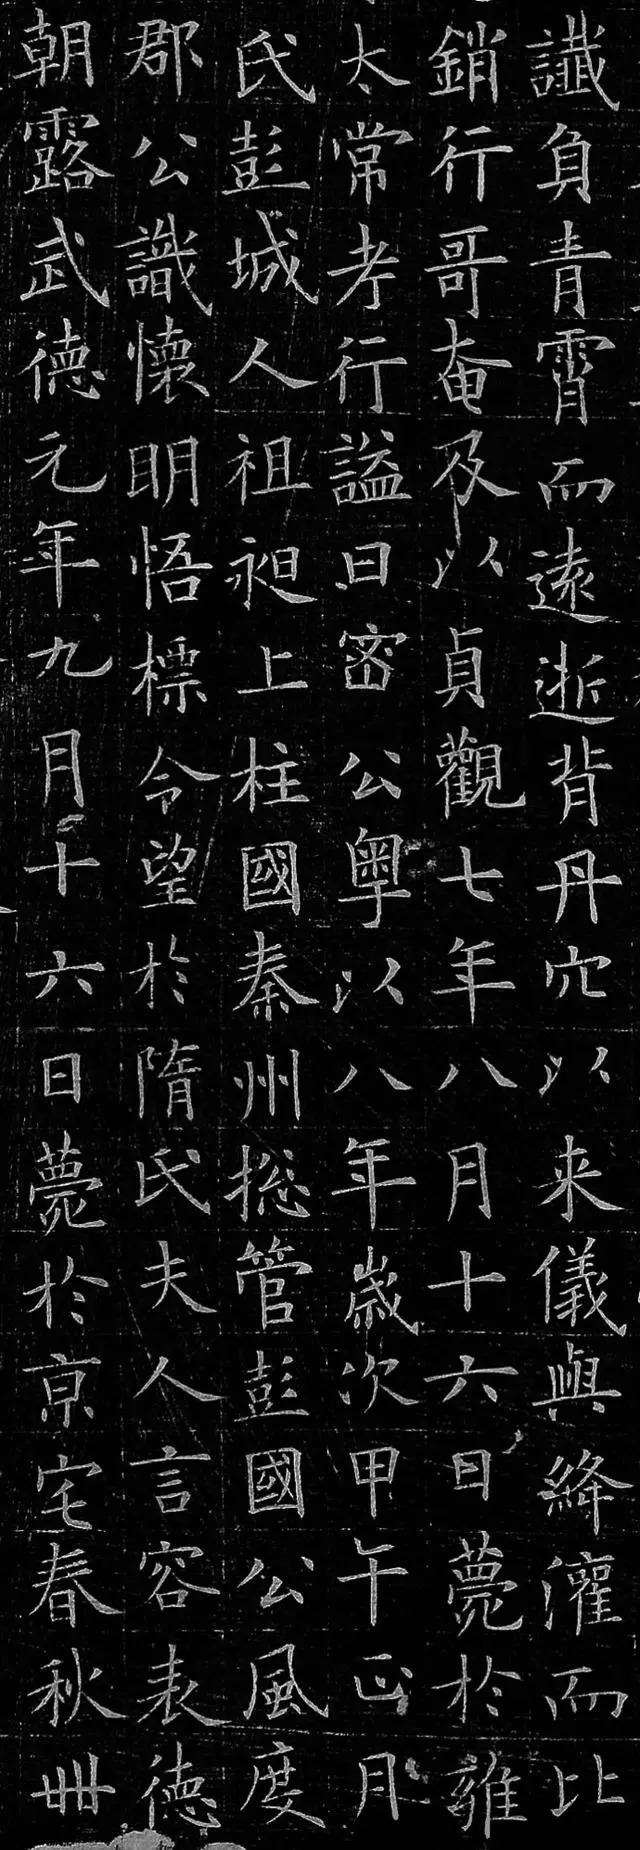 讖負青霄而遠逝背丹穴以来儀與絳灌而比
銷行哥奄及以貞觀七年八月十六日薨於雍
太常考行謚曰密公粤以八年歲次甲午正月
氏彭城人祖昶上柱國秦州揔管彭國公風度
郡公識懷明悟標令望於隋氏夫人言容表德
朝露武德元年九月十六日薨於京宅春秋卌